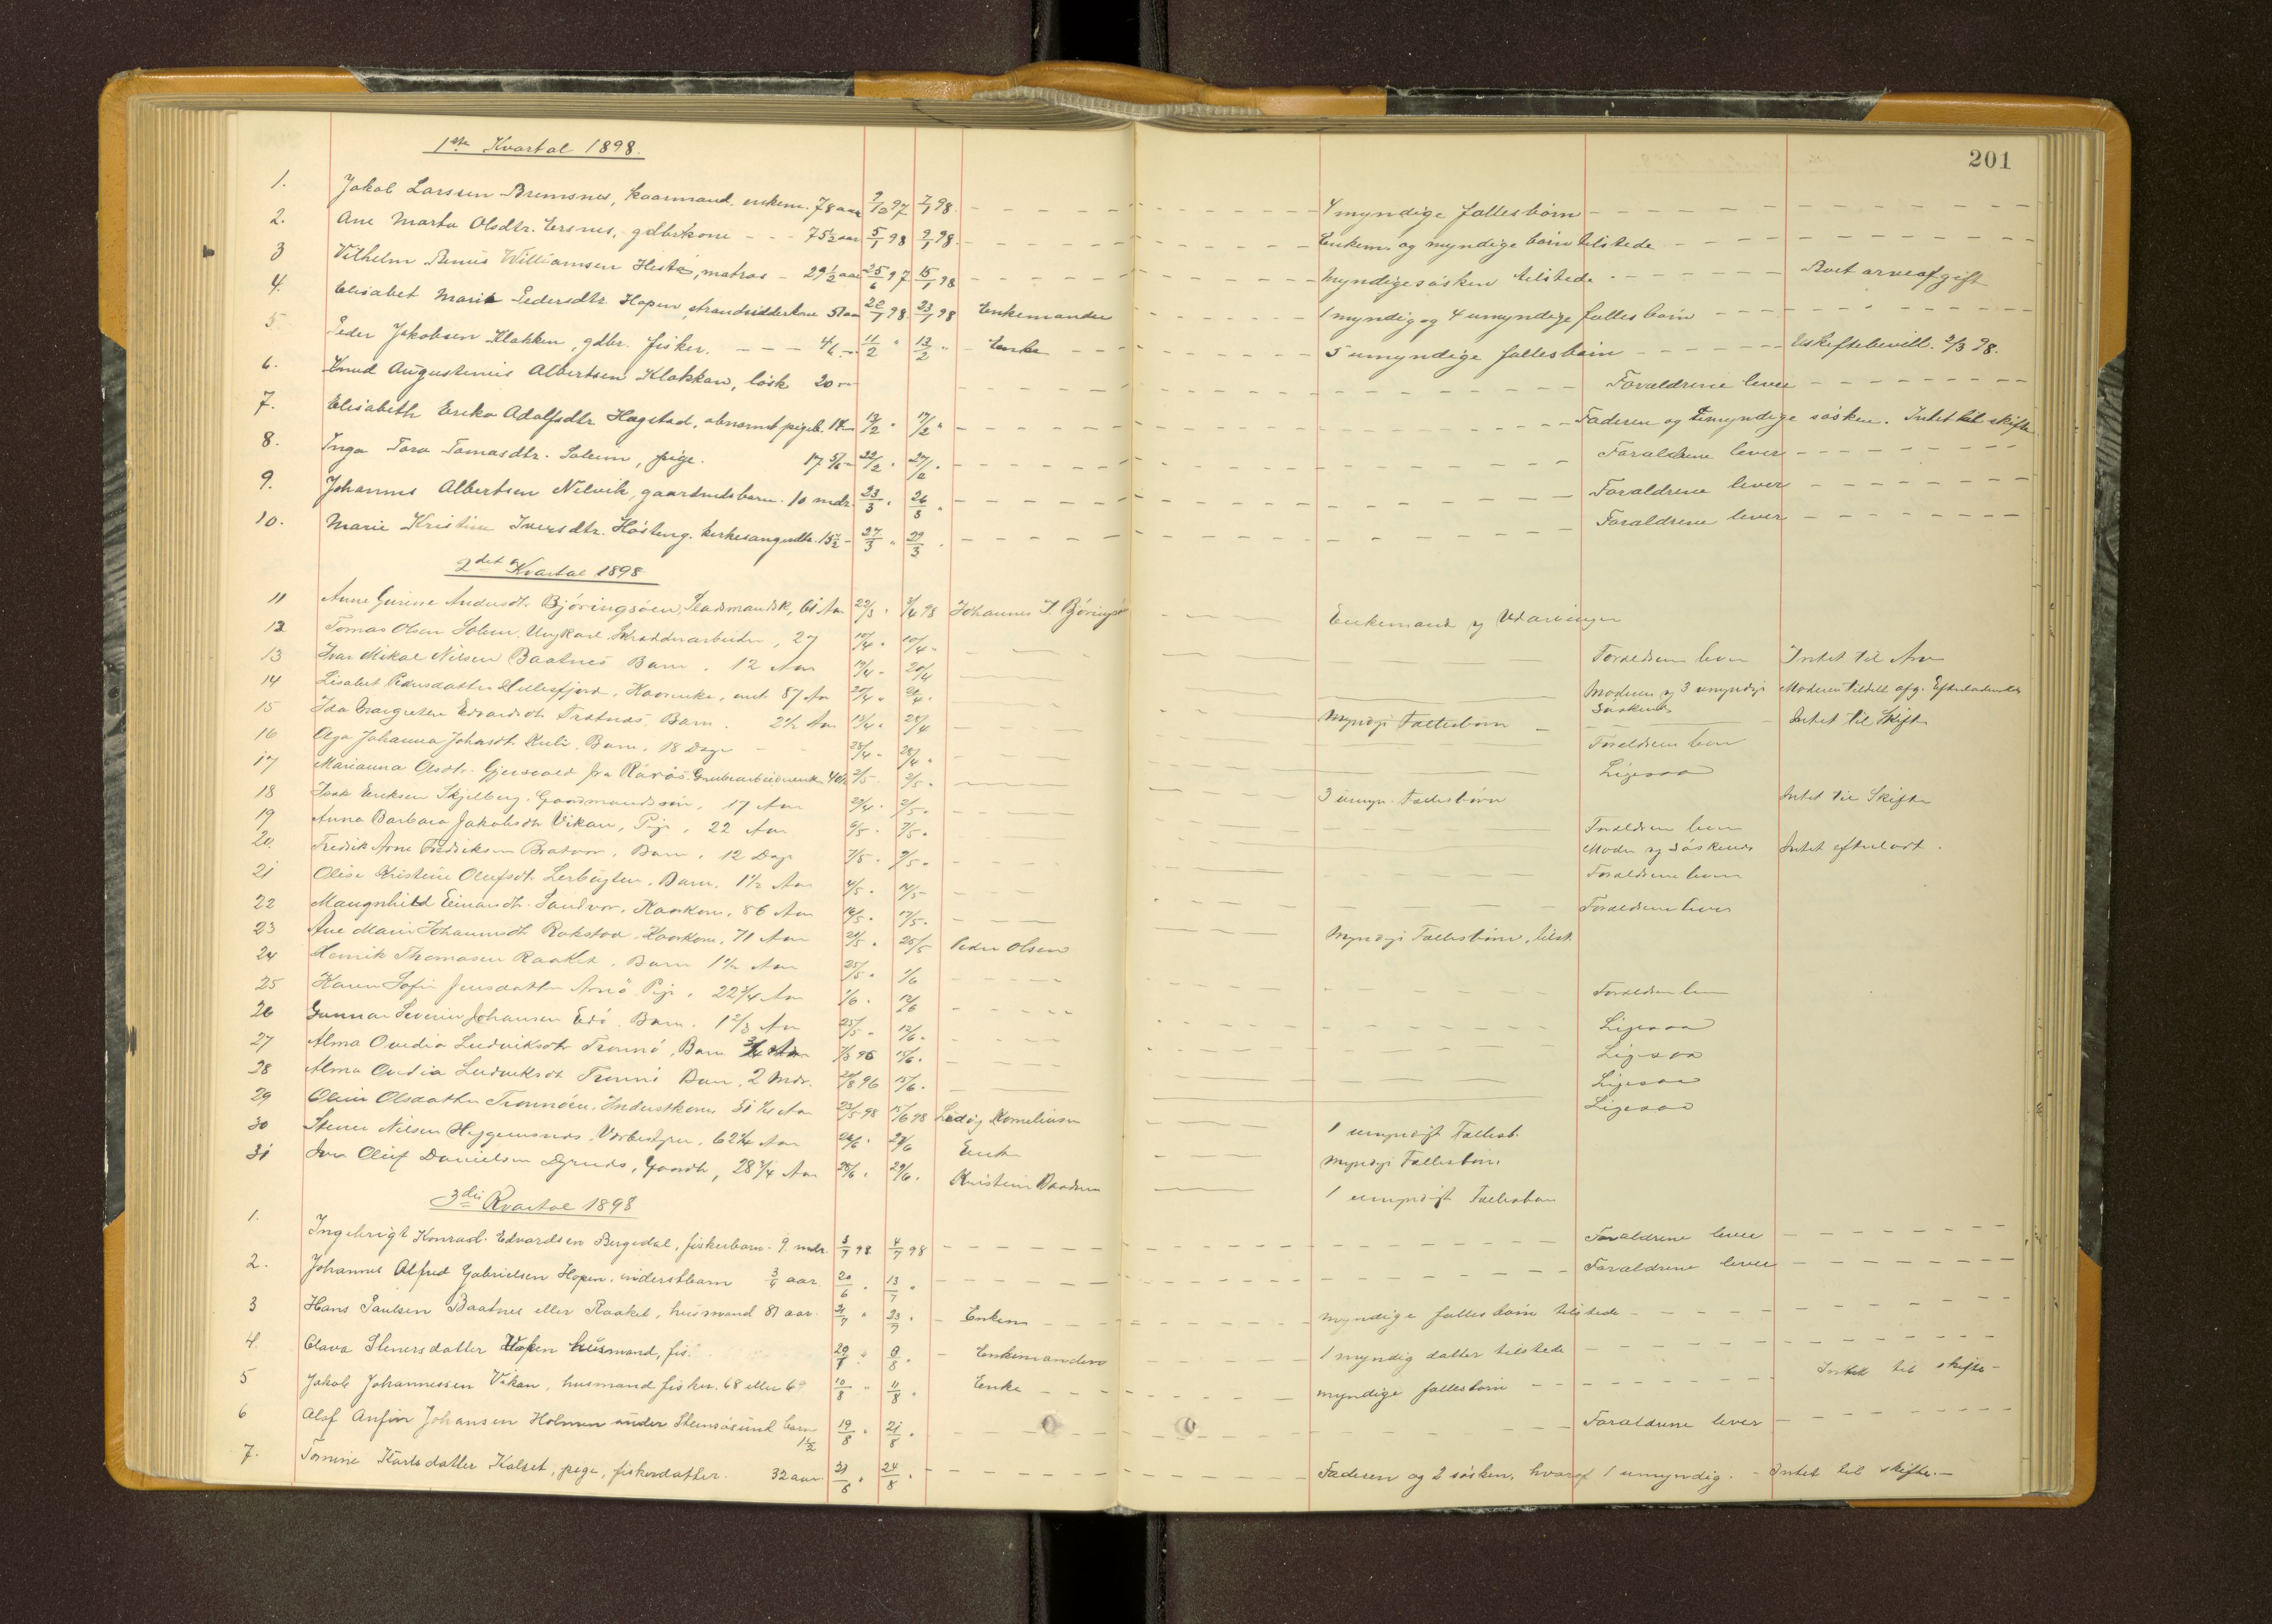 201
1ste Kvartal 1898.
1. Jakob Larssen Bremsnes, kaarmand. enkem. 78 aar 9/10 97 7/1 98. 4 myndige fællesbørn
2. Ane Marta Olsdtr. Ersnes, gdbrkone 75½ aar 5/1 98 9/1 98. Enkem. og myndige børn tilstede
3 Vilhelm Benus Williamsen Hestø, matros - 29½ aar 25/6 97 15/1 98 Myndige søsken tilstede Boet arveafgift
4. Elisabet Marie Pedersdtr. Hopen, strandsidderkone 51 aar 20/1 98. 23/1 98 Enkemanden 1 myndig og 4 umyndige fællesbørn
5. Peder Jakobsen Klakken, gdbr. fisker. 46 11/2 " 13/2 " Enke 5 umyndige fællesbørn Uskiftebevill. 2/3 98.
6. Knud Augustinius Albertsen Klakkan, løsk 20 Forældrene lever
7. Elisabeth Erika Adolfsdtr. Hagstad, abnormt pigeb. 12/2 " 17/2 " Faderen og umyndige søsken. Intet til skifte
8. Inga Tora Tomasdtr. Solem, pige. 17 5/6 22/2 " 27/2 " Forældrene lever
9. Johannes Albertsen Nilvik, gaardmdsbarn. 10 mdr. 23/3 " 26/3 " Forældrene lever
10. Marie Kristine Iversdtr. Høsteng. kirkesangerdtr. 15½ - 27/3 " 29/3 " Forældrene lever
2det Kvartal 1898
11 Anne Gurine Andersdtr Bjøringsøen, Pladsmandsk, 61 Aar 22/3 " 3/4 98 Johannes J Bjøringsø Enkemand og Udarvinger
12 Tomas Olsen Solem. Ungkarl Skrædderarbeider, 27 10/4 " 10/4 " Forældrene lever Intet til Arv
13 Ivar Mikal Nilsen Baatnes Barn. 12 Aar 19/4 " 20/4 Moderen og 3 umyndige Søskende Moderen tildelt afg. Efterladenskab
14 Lisabet Pedersdatter Hillesfjord, Kaarenke, omt. 87 Aar Myndige Fællesbørn Intet til Skifte
15 Ida Margrethe Edvardsdtr Trætnæs, Barn. 2½ Aar 13/4 " 24/4 Forældrene lever
16 Olga Johanna Johansdtr Kuli, Barn, 18 Dage 25/4 " 28/4 " Ligesaa
17 Marianna Olsdtr. Gjersvold fra Rørøs. Grubearbeiderenke 2/5 " 3/5 " 3 umyn. Fællesbørn Intet til Skifte
18 Isak Eriksen Skjelberg. Gaardmandssøn, 17 Aar 29/4 " 2/5 " Forældrene lever
19 Anna Barbara Jakobsdtr Vikan, Pige, 22 Aar 6/5 " 7/5 " Moder og Søskende Intet efterladt.
20. Fredrik Arne Fredriksen Bratvær. Barn, 12 Dage 7/5 " 9/5 " Forældrene lever
21 Olise Kristine Olufsdtr Lerbugten, Barn, 1½ Aar 4/5 " 14/5 " Forældrene lever
22 Maugnhild Einarsdtr. Sandvær, Kaarkone, 86 Aar 16/5 " 17/5 " Myndige Fællesbørn, tilst.
23 Ane Marie Johannesdtr Rokstad Kaarkone, 71 Aar 21/5 " 25/5 Peder Olsen
24 Henrik Thomasen Raaket, Barn 1½ Aar 25/5 " 1/6 Forældrene lever
25 Karen Sofie Jensdatter Arnø Pige, 22¾ Aar 1/6 " 12/6 Ligesaa
26 Gunnar Severin Johansen Edø. Barn. 1 2/3 Aar 25/5 " 12/6 " Ligesaa
27 Alma Ovidia Ludviksdtr Tronnø, Barn 15/6 " Ligesaa
28 Alma Ovidia Ludviksdtr Tronnø Barn, 2 Mdr. 96 15/6 " Ligesaa
29 Oline Olsdatter Tronnøen, Inderstkone 23/5 98 15/6 98 Ludvig Kornelinsen 1 umyndigt Fællesb.
30 Stener Nilsen Heggemsnes, Vårbestyrer, 62¾ Aar 29/6 Enke Myndige Fællesbørn
31 Oluf Danielsen, Gaardb, 28¾ Aar 25/6 " 29/6 " Kristine 1 umyndigt Fællesbarn
3die Kvartal 1898
1. Ingebrigt Konrad Edvardsen Bergedal, fiskerbarn 9 mdr. 3/7 98 4/7 98 Forældrene lever
2. Johannes Alfred Gabrielsen Hopen. inderstbarn 3/4 aar. 20/6 " 13/7 " Forældrene lever
3 Hans Paulsen Baatnes eller Raaket, husmand 81 aar. 21/7 " 23/7 " Enken myndige fællesbørn tilstede
4. Olava Stenersdatter Hopen husmand, fis. 29/7 " 8/8 " Enkemanden 1 myndig datter tilstede
5 Jakob Johannessen Vikan, husmand fisker. 68 eller 69 10/8 " 11/8 " Enke myndige fællesbørn Intet til skifte -
6 Alof Anfinn Johansen Holmen under Stensøsund barn 1½ 19/8 " 21/8 " Forældrene lever
7. Tomine Karlsdatter Kalset, pige, fiskerdatter. 32 aar. 24/8 " Faderen og 2 søsken, hvoraf 1 umyndig. - Intet til skifte. -